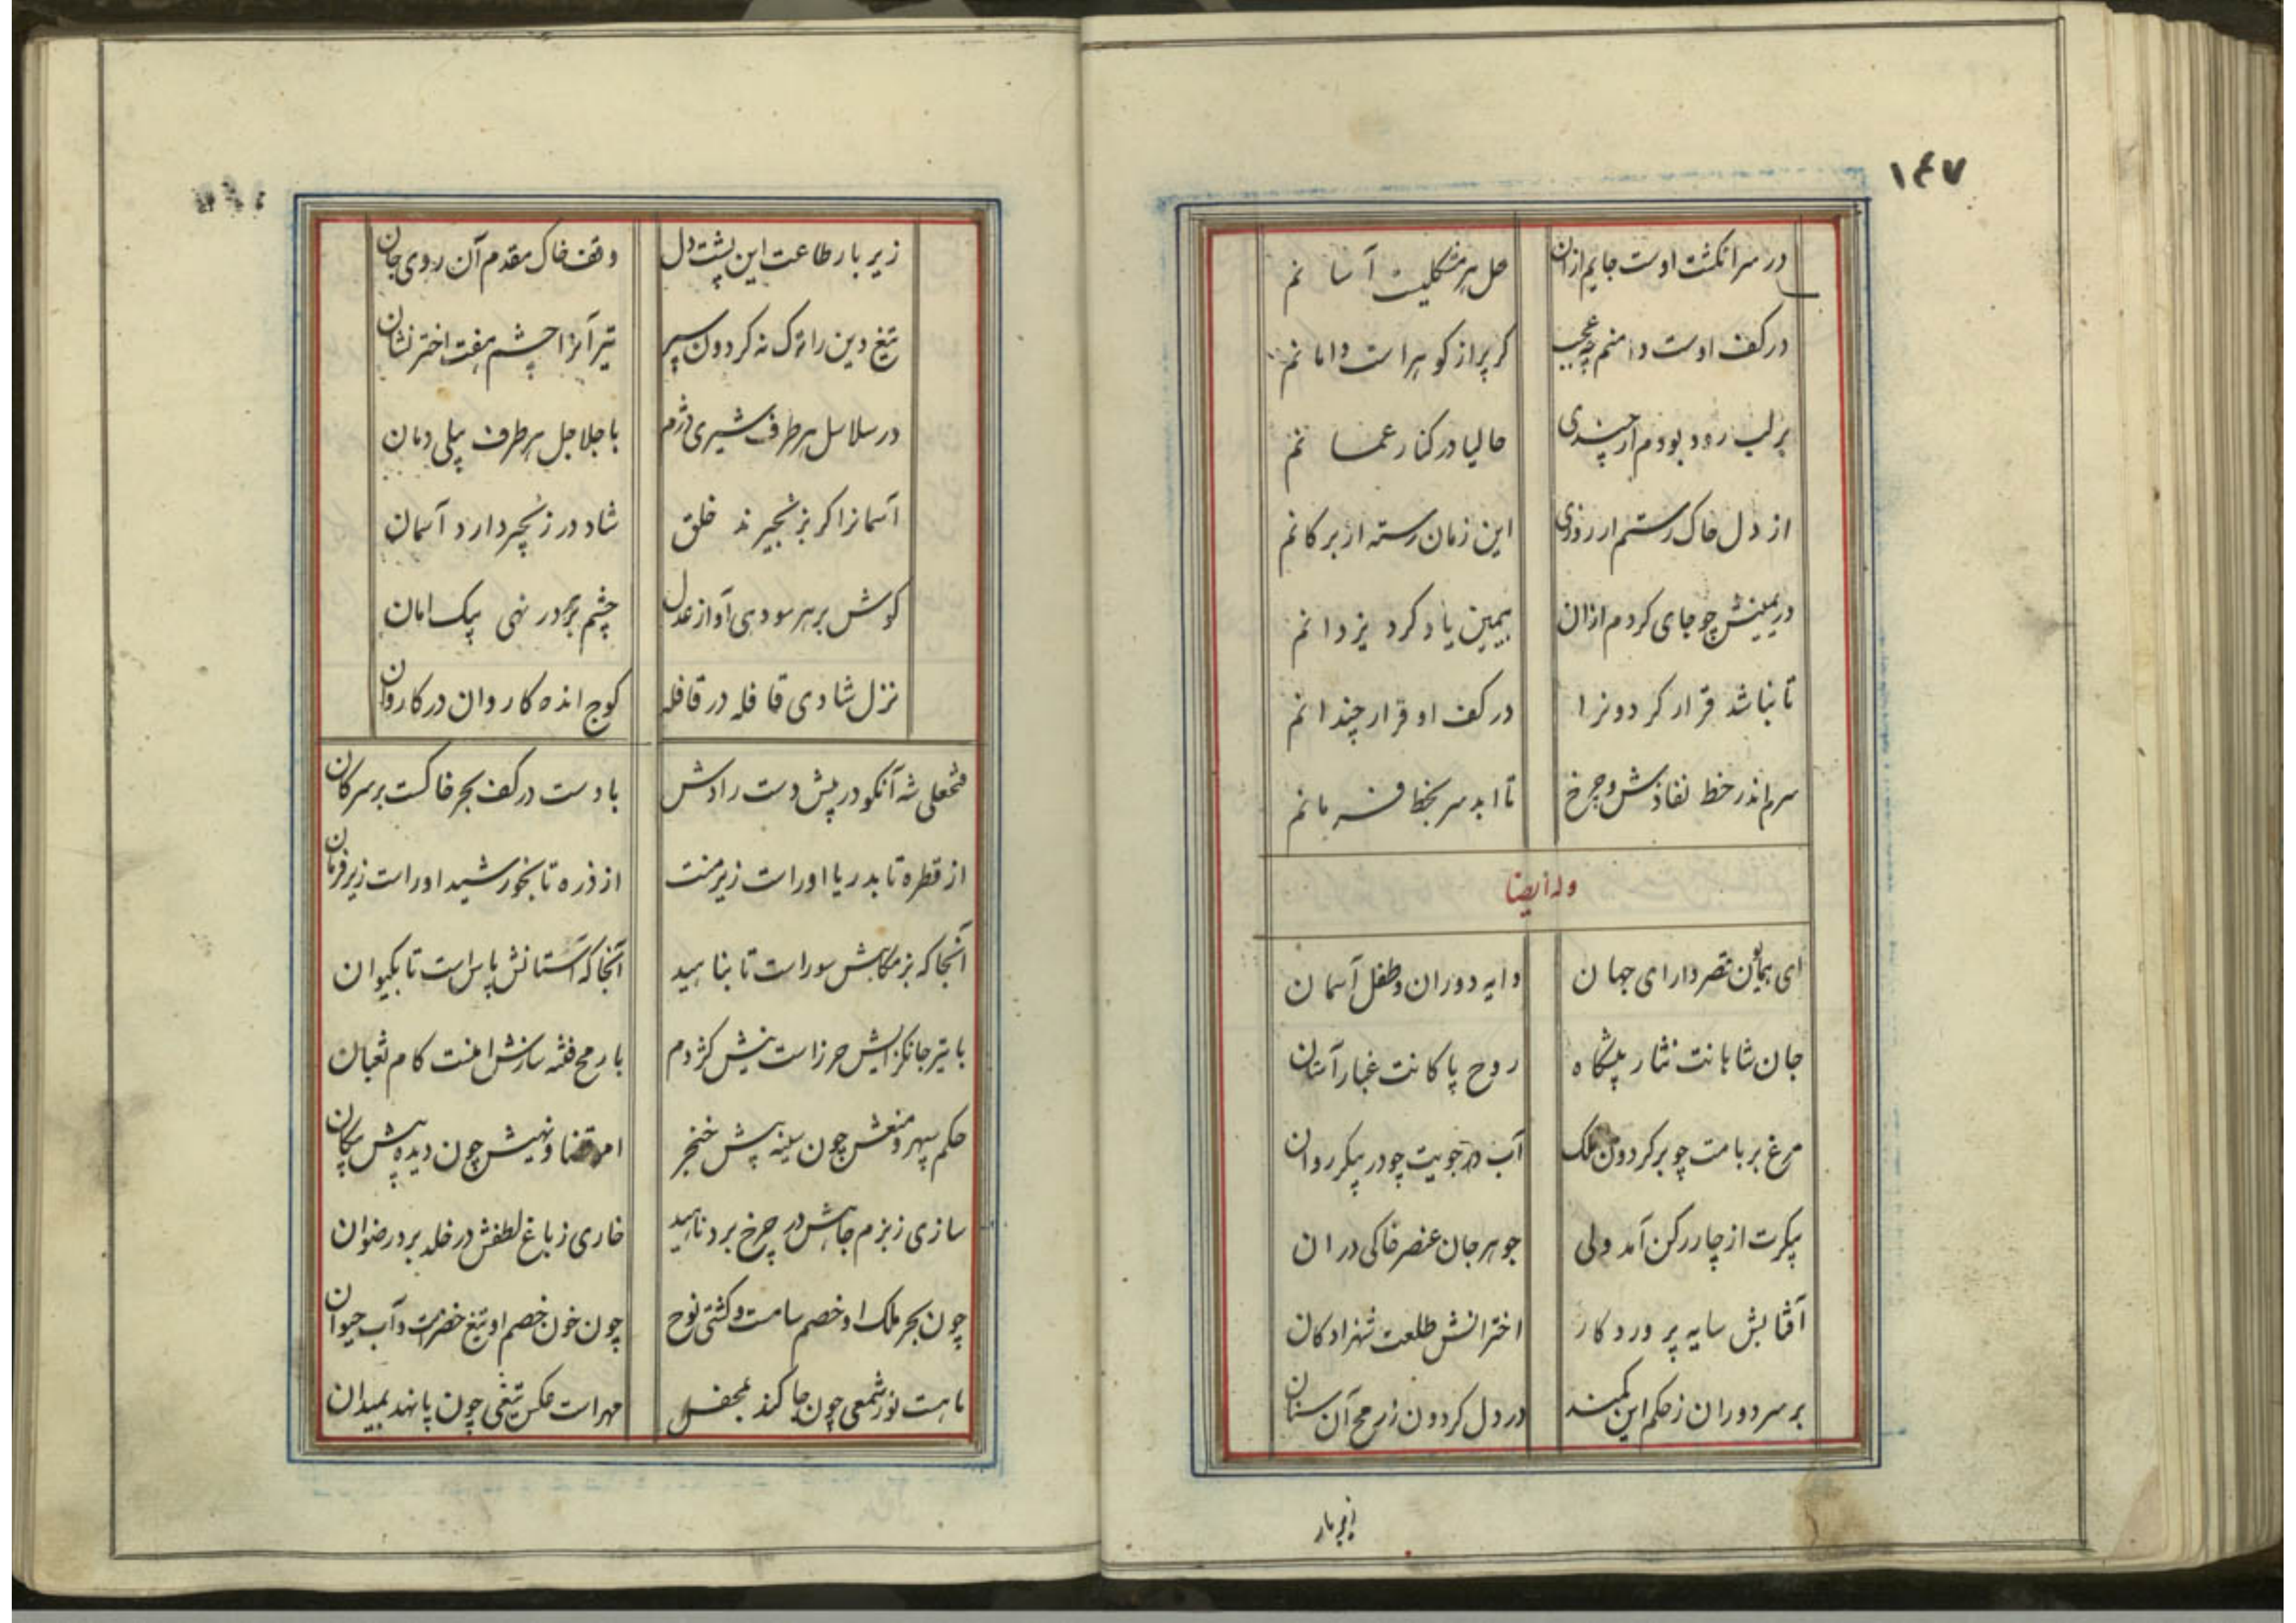 ۱۴۷
در سر انکشت اوست جایم ازان حل هر مشکلیست آسانم
در کف اوست دامنم چه عجب کر پر از کوهر است دامانم
بر لب رود بودم ار چندی حالیا در کنار عمانم
از دل خاک رستم ار روزی این زمان رسته از بر کانم
در یمینش چو جای کردم ازان بیمین یاد کرد یزدانم
تا نباشد قرار کردونرا در کف او قرار چندانم
سرم اندر خط نفاذش و چرخ تا ابد سر بخط فرمانم
وله ایضا
ای همایون قصر دارای جهان دایه دوران و طفل آسمان
جان شاهانت نثار پیشگاه روح پاکانت غبار آستان
مرغ بر بامت چو بر کردون ملک آب در جویت چو در پیکر روان
پیکرت از چار رکن آمد ولی جوهر جان عنصر خاکی دران
آفتابش سایه پروردکار اخترانش طلعت شهزادکان
بر سر دوران ز حکم این کمند در دل کردون ز رمح آن سنان
زیر بار
زیر بار طاعت این پشت دل وقف خاک مقدم آن روی جان
تیغ دین را ترک نه کردون سپر تیر آنرا چشم هفت اختر نشان
در سلاسل هر طرف شیری دژم با جلاجل هر طرف پیلی دمان
آسمانرا کر بزنجیرند خلق شاد در زنجیر دارد آسمان
کوش بر هر سو دهی آواز عدل چشم بر هر در نهی پیک امان
نزل شادی قافله در قافله کوچ انده کاروان در کاروان
فتحعلی شه آنکو در پیش دست رادش بادست در کف بحر خاکست بر سر کان
از قطره تا بدریا اوراست زیر منت از ذره تا بخورشید اوراست زیر فرمان
آنجا که بزمکاهش سوراست تا بناهید آنجا که آستانش پاس است تا بکیوان
با تیر جانکزایش حرز است نیش کژدم با رمح فتنه سازش امنست کام ثعبان
حکم سپهر و منعش چون سینه پیش خنجر امر قضا و نهیش چون دیده پیش پیکان
سازی ز بزم جاهش در چرخ برد ناهید خاری ز باغ لطفش در خلد برد رضوان
چون بحر ملک او خصم سامست و کشتی نوح چون خون خصم او تیغ خضرست و آب حیوان
ماهت نور شمعی چون جا کند بمحفل مهراست عکس تیغی چون پا نهد بمیدان